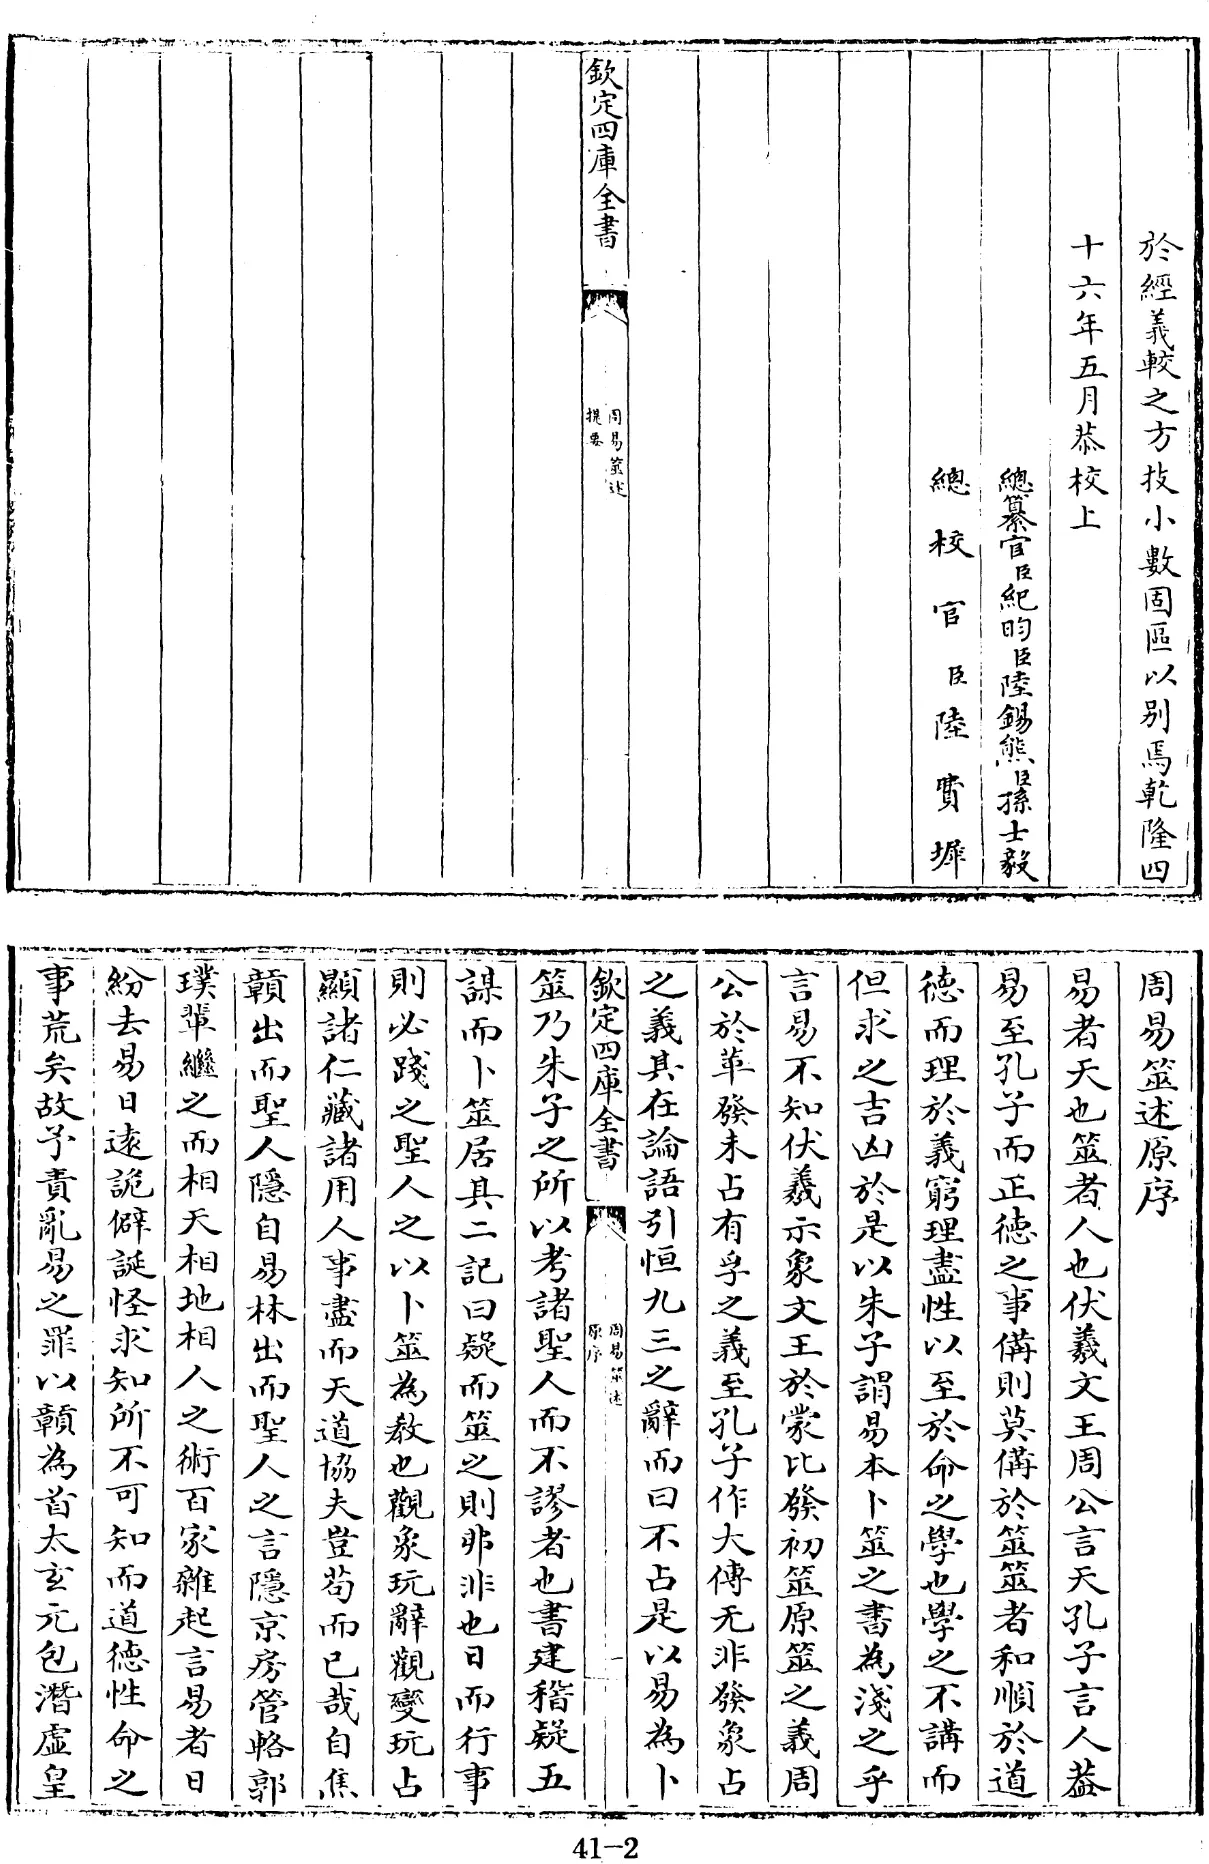 於經義較之方技小數固區以别焉乾隆四
十六年五月恭校上
總纂官臣紀昀臣陸錫熊臣孫士毅
總校官臣陸費墀
欽定四庫全書
周易筮述
提要
周易筮述原序
易者天也筮者人也伏羲文王周公言天孔子言人葢
易至孔子而正德之事備則莫備於筮筮者和順於道
德而理於義窮理盡性以至於命之學也學之不講而
但求之吉凶於是以朱子謂易本卜筮之書為淺之乎
言易不知伏羲示象文王於蒙比發初筮原筮之義周
公於革發未占有孚之義至孔子作大傳无非發象占
之義其在論語引恒九三之辭而曰不占是以易為卜
欽定四庫全書
周易筮述
原序
筮乃朱子之所以考諸聖人而不謬者也書建稽疑五
謀而卜筮居其二記曰疑而筮之則弗非也日而行事
則必踐之聖人之以卜筮為教也觀象玩辭觀變玩占
顯諸仁藏諸用人事盡而天道協夫豈苟而已哉自焦
贛出而聖人隱自易林出而聖人之言隱京房管輅郭
璞輩繼之而相天相地相人之術百家雜起言易者日
紛去易日逺詭僻誕怪求知所不可知而道德性命之
事荒矣故予責亂易之罪以贛為首太玄元包潛虛皇
41-2